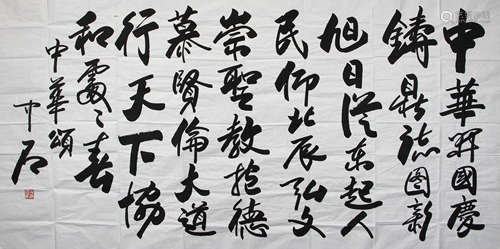 中華興國慶
鑄鼎誌圖新
旭日從東起人
民仰北辰弘文
崇聖教抱德
慕賢倫大道
行天下協
和處〻春
中華頌
中石